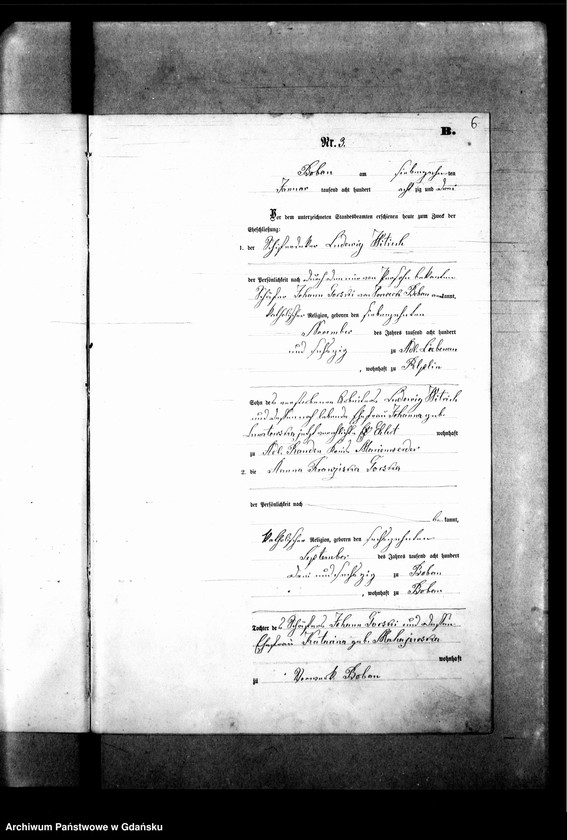 6
B.
Nr. 3.
Boban am siebenzehnten
Januar tausend acht hundert acht zig und drei
Vor dem unterzeichneten Standesbeamten erschienen heute zum Zweck der
Eheschließung:
1. der Ludwig Witisch
der Persönlichkeit nach durch den mir von Person bekannten
Schäfer Johann Gorski von Boban kannt,
katholischer Religion, geboren den siebenzehnten
November des Jahres tausend acht hundert
und sechszig zu Adl. Liebenau
, wohnhaft zu Pelplin
Sohn des verstorbenen Arbeiters Ludwig Witisch
und dessen noch lebende Ehefrau Johanna geb.
jetzt verehelichte wohnhaft
zu Adl. Kreis Marienwerder
2. die Anna Franziska Gorski
der Persönlichkeit nach
be kannt,
katholischer Religion, geboren den sechszehnten
September des Jahres tausend acht hundert
drei und sechszig zu Boban
, wohnhaft zu Boban
Tochter des Schäfers Johann Gorski und dessen
Ehefrau Katarina geb.
wohnhaft
zu Vorwerk Boban
Archiwum Państwowe w Gdańsku